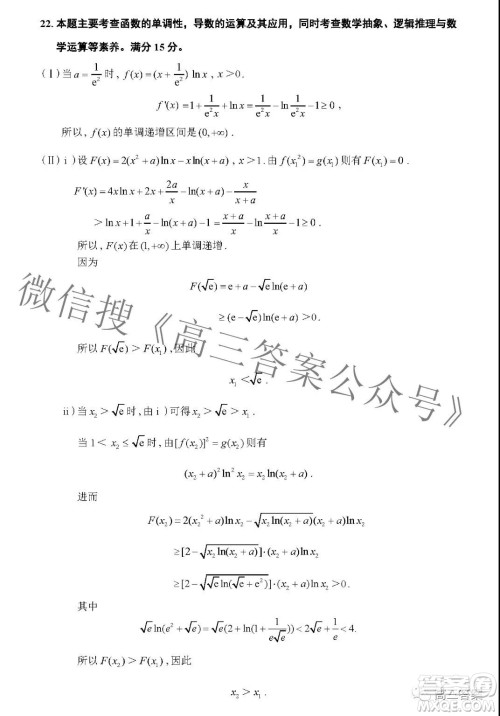 22. 本题主要考查函数的单调性，导数的运算及其应用，同时考查数学抽象、逻辑推理与数
学运算等素养。满分 15 分。
(Ⅰ) 当 a = 1/e² 时，f(x) = (x + 1/e²) ln x，x > 0.
f′(x) = 1 + 1/(e²x) + ln x = 1/(e²x) − ln 1/(e²x) − 1 ≥ 0，
所以，f(x) 的单调递增区间是 (0, +∞).
(Ⅱ) ⅰ) 设 F(x) = 2(x² + a) ln x − x ln(x + a)，x > 1. 由 f(x₁²) = g(x₁) 则有 F(x₁) = 0.
F′(x) = 4x ln x + 2x + 2a/x − ln(x + a) − x/(x + a)
> ln x + 1 + a/x − ln(x + a) − 1 = (x + a)/x − ln (x + a)/x − 1 ≥ 0
所以，F(x) 在 (1, +∞) 上单调递增.
因为
F(√e) = e + a − √e ln(e + a)
≥ (e − √e) ln(e + a)
所以 F(√e) > F(x₁)，因此
x₁ < √e.
ⅱ) 当 x₂ > √e 时，由 ⅰ) 可得 x₂ > x₁.
当 1 < x₂ ≤ √e 时，由 [f(x₂)]² = g(x₂) 则有
(x₂ + a)² ln² x₂ .
进而
F(x₂) = 2(x₂² + a) ln x₂ − √(x₂ ln(x₂ + a)) (x₂ + a) ln x₂
≥ [2 − √(x₂ ln(x₂ + a))]·(x₂ + a) ln x₂
≥ [2 − √(√e ln(√e + e²))]·(x₂ + a) ln x₂ > 0.
其中
√e ln(e² + √e) = √e (2 + ln(1 + 1/(e√e))) < 2√e + 1/e < 4.
所以 F(x₂) > F(x₁)，因此
x₂ > x₁ .
微信搜《高三答案公众号》
高三答案